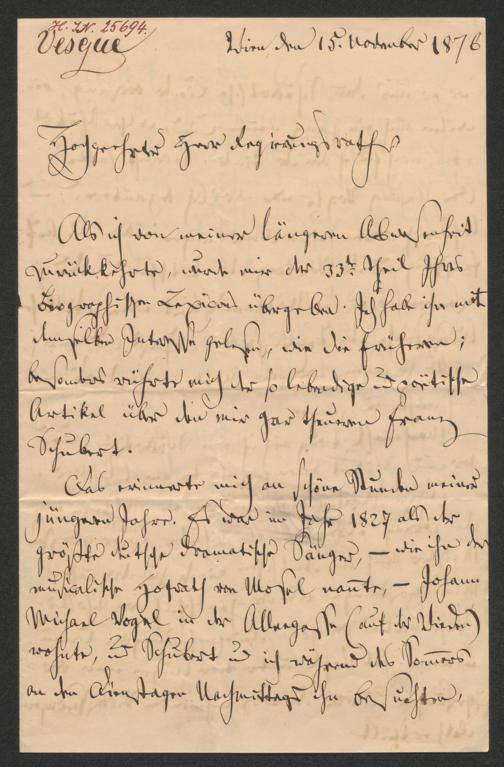 H. I. N. 25694.
Vesque
Wien, den 15. November 1876
Hochgeehrter Herr Regierungsrath
Als ich von meiner längeren Abwesenheit
zurückkehrte, wurde mir der 33te Theil Ihres
Biographischen Lexicons übergeben. Ich habe ihn mit
demselben Interesse gelesen, wie die früheren;
besonders rührte mich der so lebendige und poëtische
Artikel über den mir gar theueren Franz
Schubert.
Das erinnerte mich an schöne Stunden meiner
jüngeren Jahre. Es war im Jahr 1827 als der
größte deutsche dramatische Sänger, – wie ihn der
musicalische Hofrath von Mosel nannte, – Johann
Michael Vogel in der Alleegasse (auf der Wieden)
wohnte, und Schubert und ich während des Sommers
an den Dienstagen Nachmittags ihn besuchten,